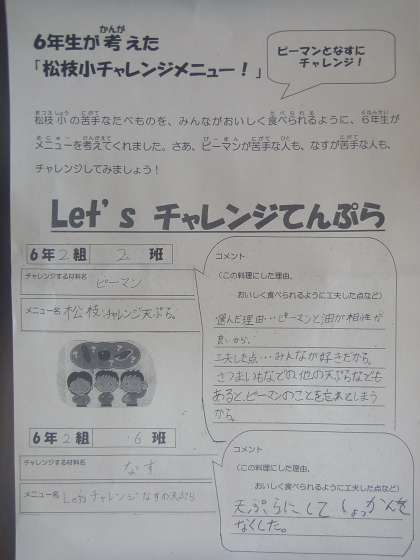 6年生が考えた
「松枝小チャレンジメニュー!」
ピーマンとなすに
チャレンジ!
松枝小の苦手なたべものを、みんながおいしく食べられるように、6年生が
メニューを考えてくれました。さあ、ピーマンが苦手な人も、なすが苦手な人も、
チャレンジしてみましょう!
Let's チャレンジてんぷら
6年2組 2 班
チャレンジする材料名
ピーマン
メニュー名 松枝チャレンジ天ぷら。
コメント
(この料理にした理由、
おいしく食べられるように工夫した点など)
選んだ理由…ピーマンと油が相性が
良いから。
工夫した点…みんなが好きだから。
さつまいもなどの他の天ぷらなども
あると、ピーマンのことを忘れてしまう
から。
6年2組 6 班
チャレンジする材料名
なす
メニュー名 Let'sチャレンジなすの天ぷら
コメント
(この料理にした理由、
おいしく食べられるように工夫した点など)
天ぷらにして しょっかんを
なくした。